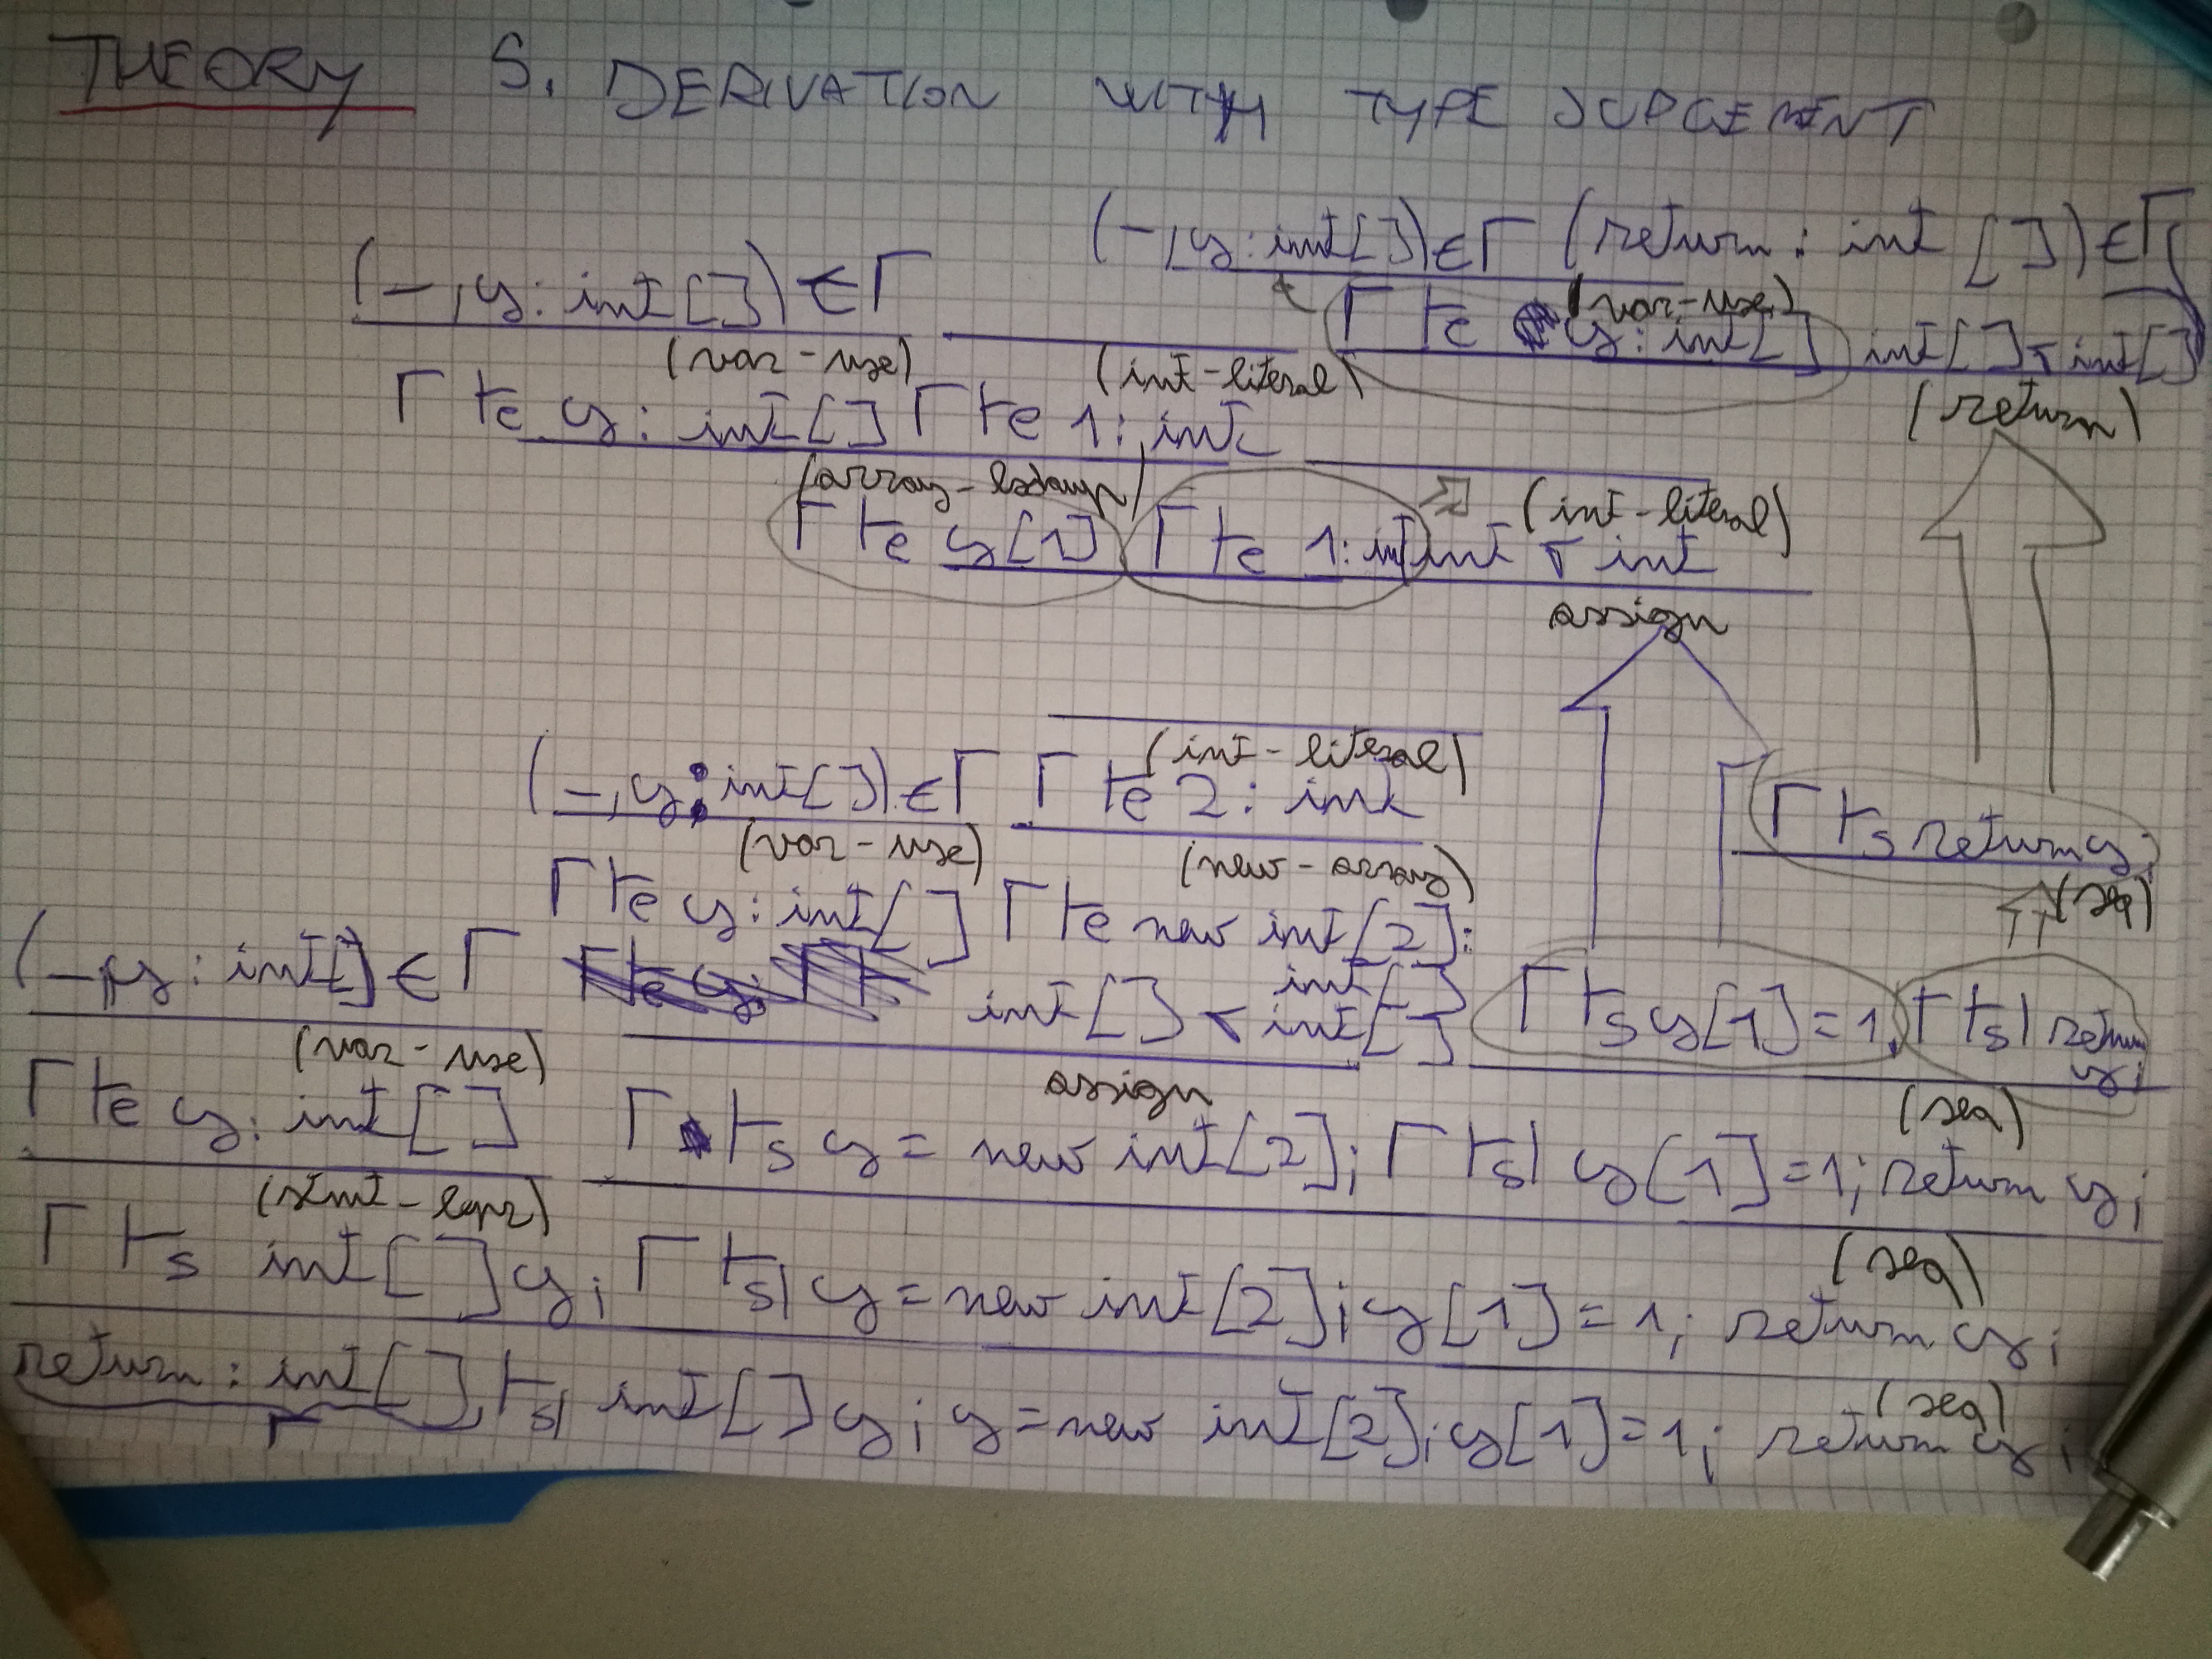 THEORY 5. DERIVATION WITH TYPE JUDGEMENT
(-,y: int[]) ∈ Γ (return: int []) ∈ Γ
(-,y: int[]) ∈ Γ
(var-use)
Γ ⊢e y: int[] int[] σ int[]
(var-use) (int-literal) (return)
Γ ⊢e y: int[] Γ ⊢e 1: int
(array-lookup) (int-literal)
Γ ⊢e y[1] Γ ⊢e 1: int int σ int
assign
(int-literal)
(-,y: int[]) ∈ Γ Γ ⊢e 2: int
Γ ⊢s return y;
(var-use) (new-array)
(seq)
Γ ⊢e y: int[] Γ ⊢e new int[2]:
int[]
(-,y: int[] ∈ Γ int[] σ int[] Γ ⊢s y[1]=1, Γ ⊢sl return y;
(var-use) assign (seq)
Γ ⊢e y: int[] Γ ⊢s y = new int[2]; Γ ⊢sl y[1]=1; return y;
(stmt-lexpr) (seq)
Γ ⊢s int[] y; Γ ⊢sl y = new int[2]; y[1]=1; return y;
(seq)
return: int[], ⊢sl int[] y; y=new int[2]; y[1]=1; return y;
Γ